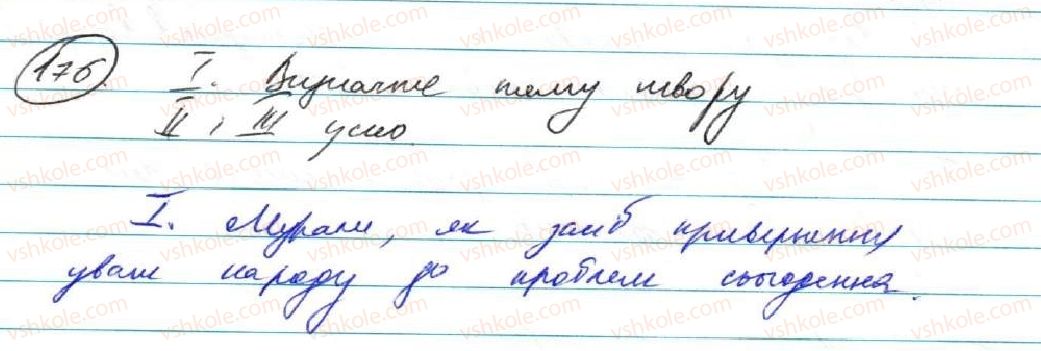 176. I. Визначте тему твору
II, III усно.
I. Мурали, як засіб привернення
уваги народу до проблем сьогодення.